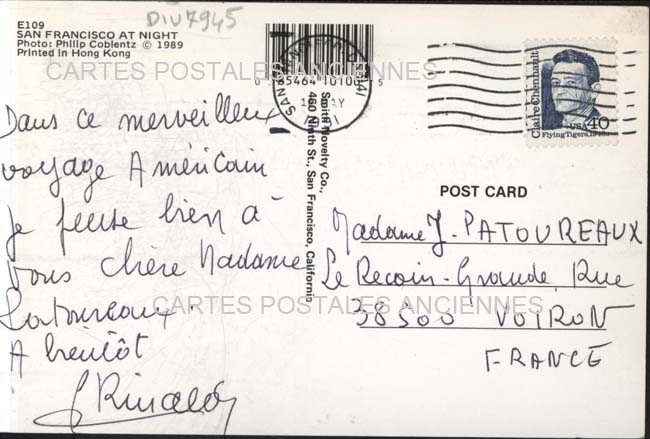 DIV7945
E109
SAN FRANCISCO AT NIGHT
Photo: Philip Coblentz © 1989
Printed in Hong Kong
CARTES POSTALES ANCIENNES
Smith Novelty Co.,
460 Ninth St., San Francisco, California
Claire Chennault
Flying Tigers, 1940s
USA 40
Dans ce merveilleux
voyage Américain
je pense bien à
vous chère Madame
Patoureaux.
A bientôt
POST CARD
Madame J. PATOUREAUX
Le Recoin-Grande Rue
38500 VOIRON
FRANCE
CARTES POSTALES ANCIENNES